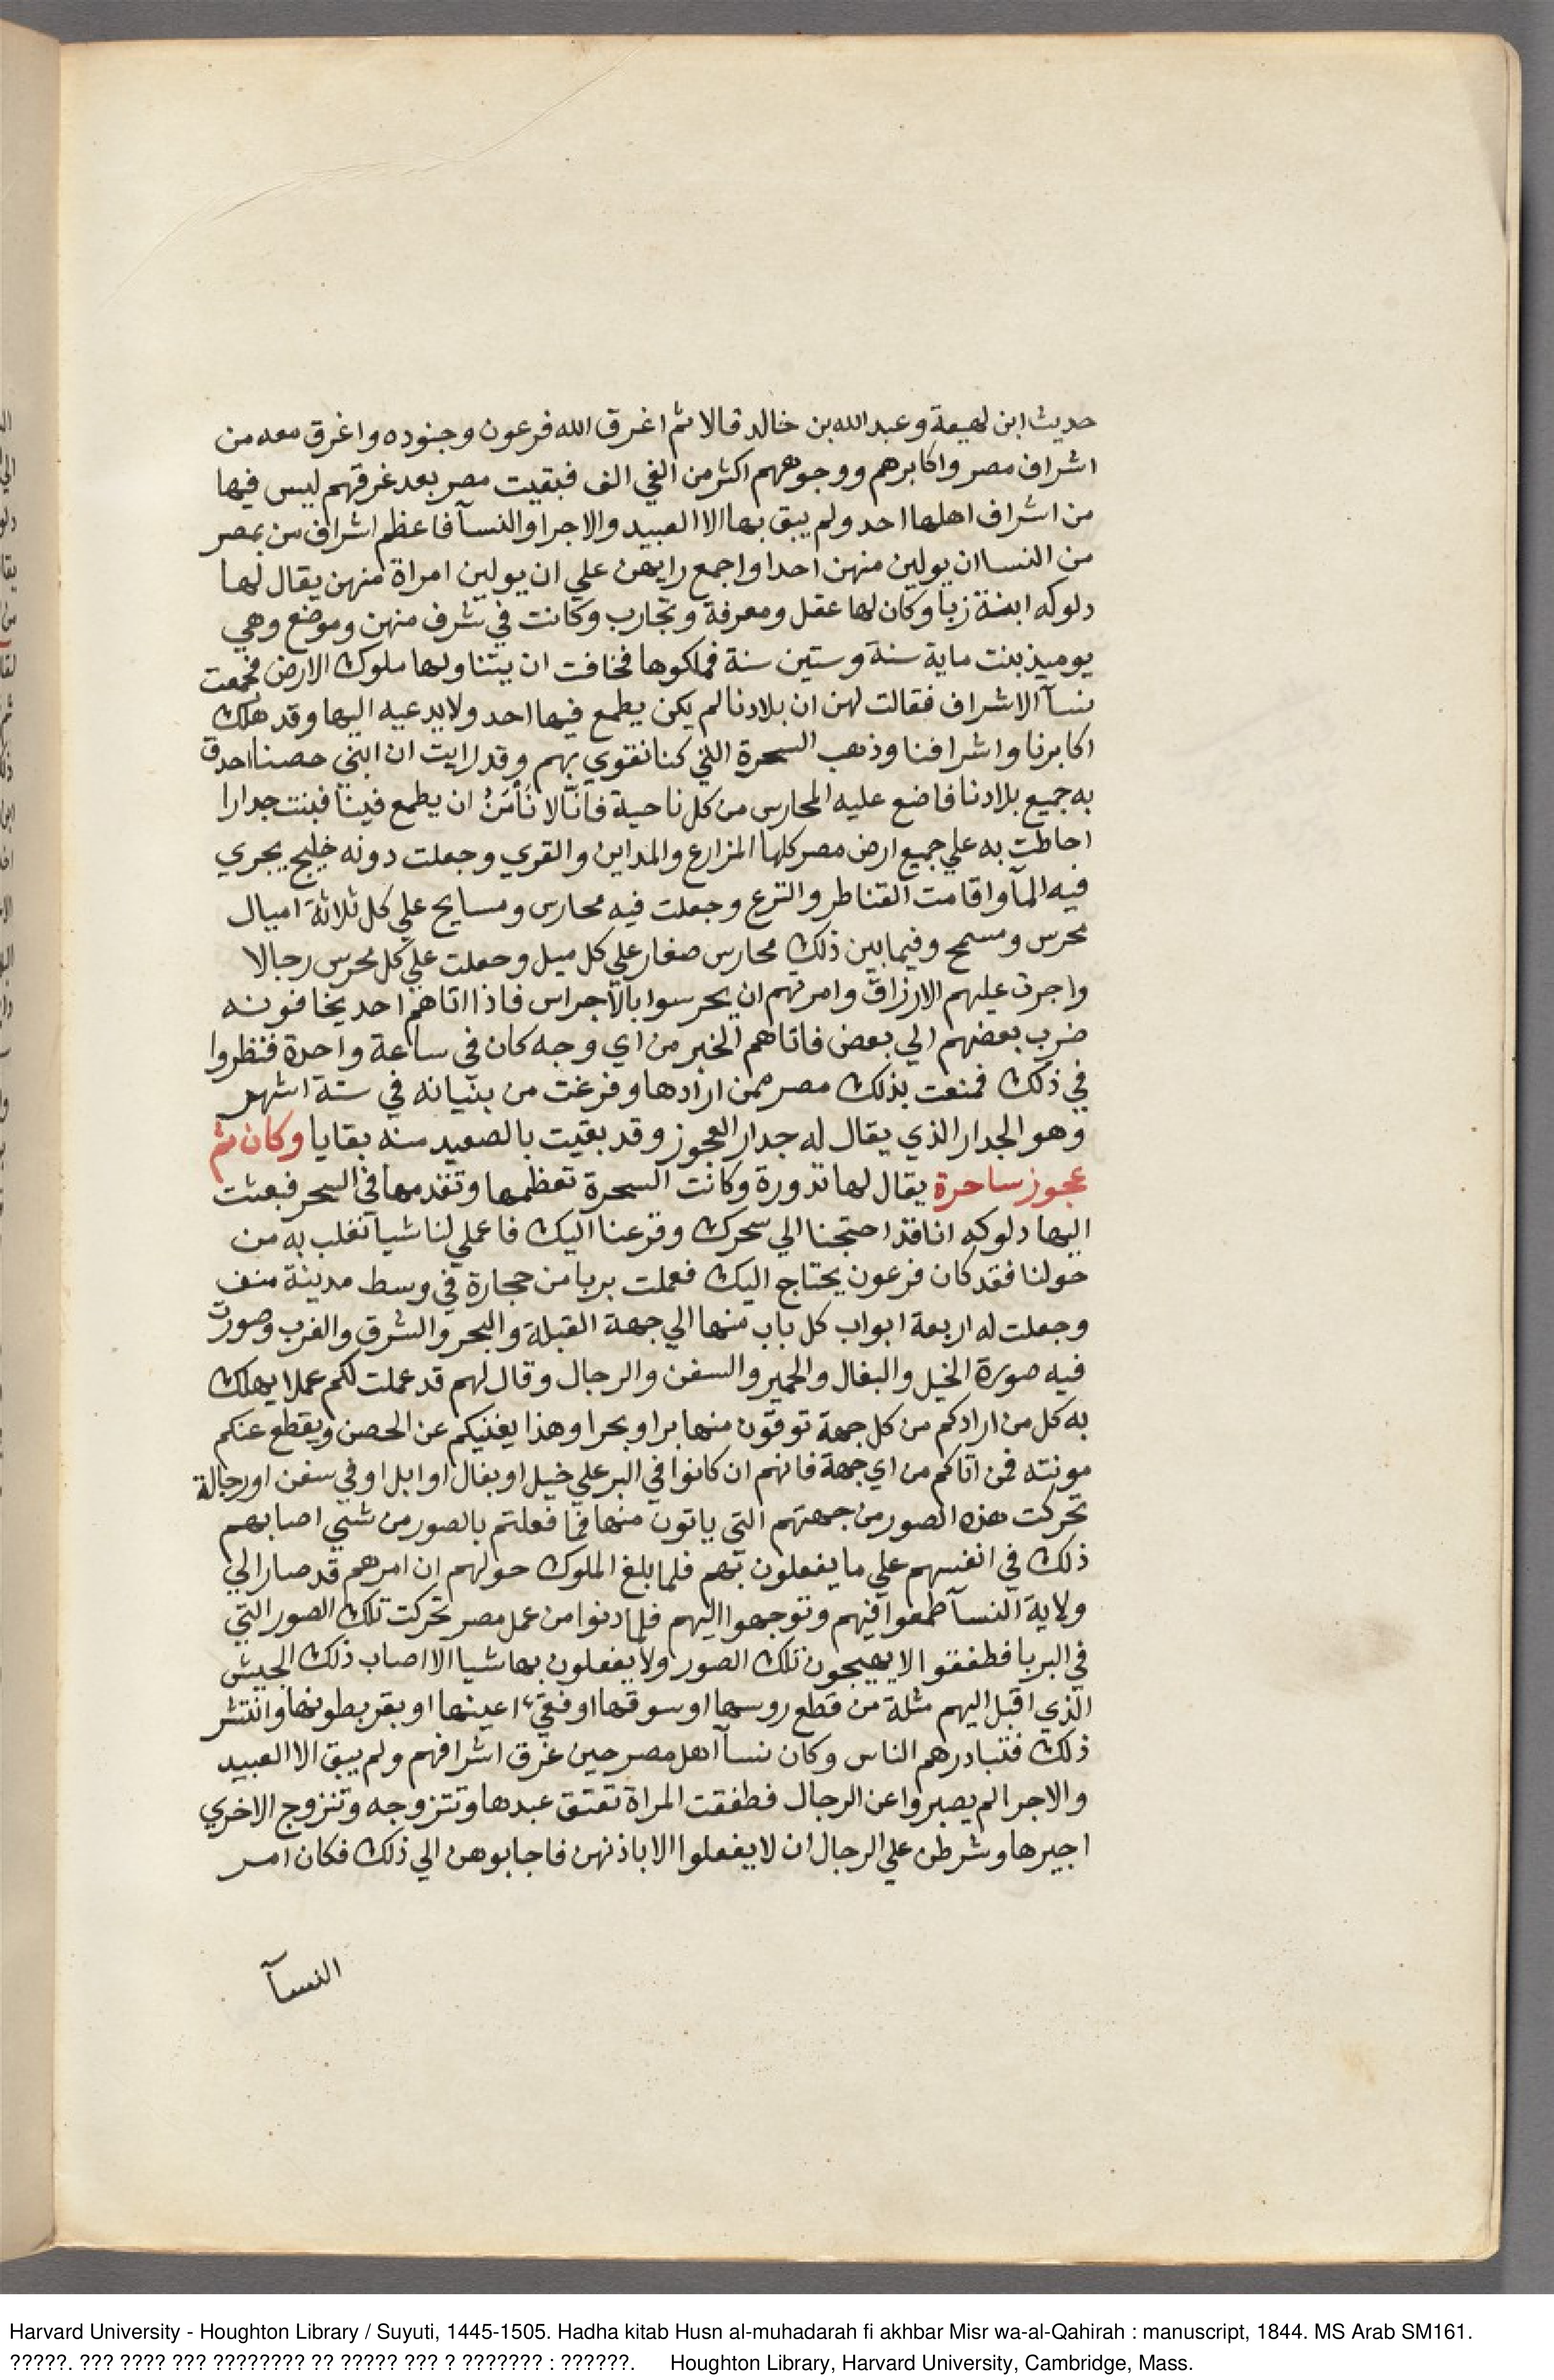 حديث ابن لهيعة وعبد الله بن خالد قالا ثم اغرق الله فرعون وجنوده واغرق معه من
اشراف مصر واكابرهم ووجوههم اكثر من الفي الف فبقيت مصر بعد غرقهم ليس فيها
من اشراف اهلها احد ولم يبق بها الا العبيد والاجرا والنسآ فاعظم اشراف من بمصر
من النسا ان يولين منهن احدا واجمع رايهن علي ان يولين امراة منهن يقال لها
دلوكه ابنة زبا وكان لها عقل ومعرفة وتجارب وكانت في شرف منهن وموضع وهي
يوميذ بنت ماية سنة وستين سنة فملكوها فخافت ان يتناولها ملوك الارض فجمعت
نسآ الاشراف فقالت لهن ان بلادنا لم يكن يطمع فيها احد ولا يدعيه اليها وقد هلك
اكابرنا واشرافنا وذهب السحرة التي كنا نقوي بهم وقد رايت ان ابني حصنا احدق
به جميع بلادنا فاضع عليه المحارس من كل ناحية فآنّا لا نَأْمَنُ ان يطمع فينا فبنت جدارا
احاطت به علي جميع ارض مصر كلها المزارع والمداين والقري وجعلت دونه خليج يجري
فيه المآ واقامت القناطر والترع وجعلت فيه محارس ومسايح علي كل ثلاثة اميال
محرس ومسمح وفيما بين ذلك محارس صغار علي كل ميل وجعلت علي كل محرس رجالا
واجرت عليهم الارزاق وامرتهم ان يحرسوا بالاجراس فاذا اتاهم احد يخافونه
ضرب بعضهم الي بعض فاتاهم الخبر من اي وجه كان في ساعة واحدة فنظروا
في ذلك فمنعت بذلك مصر ممن ارادها وفرغت من بنيانه في ستة اشهر
وهو الجدار الذي يقال له جدار العجوز وقد بقيت بالصعيد منه بقايا وكان ثم
عجوز ساحرة يقال لها تدورة وكانت السحرة تعظمها وتقدمها في السحر فبعثت
اليها دلوكه انا قد احتجنا الي سحرك وفزعنا اليك فاعملي لنا شيا نغلب به من
حولنا فقد كان فرعون يحتاج اليك فعملت بربا من حجارة في وسط مدينة منف
وجعلت له اربعة ابواب كل باب منها الي جهة القبلة والبحر والشرق والغرب وصورت
فيه صورة الخيل والبغال والحمير والسفن والرجال وقال لهم قد عملت لكم عملا يهلك
به كل من ارادكم من كل جهة توقون منها برا وبحرا وهذا يغنيكم عن الحصن ويقطع عنكم
مونته فمن اتاكم من اي جهة فانهم ان كانوا في البر علي خيل او بغال او ابل او في سفن او رجالة
تحركت هذه الصور من جهتهم التي ياتون منها فما فعلتم بالصور من شيي اصابهم
ذلك في انفسهم علي ما يفعلون بهم فلما بلغ الملوك حولهم ان امرهم قد صار الي
ولاية النسآ طمعوا فيهم وتوجهوا اليهم فلما دنوا من عمل مصر تحركت تلك الصور التي
في البربا فطفقوا لا يهيجون تلك الصور ولا يفعلون بها شيا الا اصاب ذلك الجيش
الذي اقبل اليهم مثلة من قطع روسها او سوقها او فقيء اعينها او بقر بطونها وانتشر
ذلك فتبادرهم الناس وكان نسآ اهل مصر حين غرق اشرافهم ولم يبق الا العبيد
والاجرا لم يصبروا عن الرجال فطفقت المراة تعتق عبدها وتتزوجه وتتزوج الاخري
اجيرها وشرطن علي الرجال ان لا يفعلوا الا باذنهن فاجابوهن الي ذلك فكان امر
النسآ
Harvard University - Houghton Library / Suyuti, 1445-1505. Hadha kitab Husn al-muhadarah fi akhbar Misr wa-al-Qahirah : manuscript, 1844. MS Arab SM161.
?????. ??? ???? ??? ???????? ?? ????? ??? ? ??????? : ??????. Houghton Library, Harvard University, Cambridge, Mass.